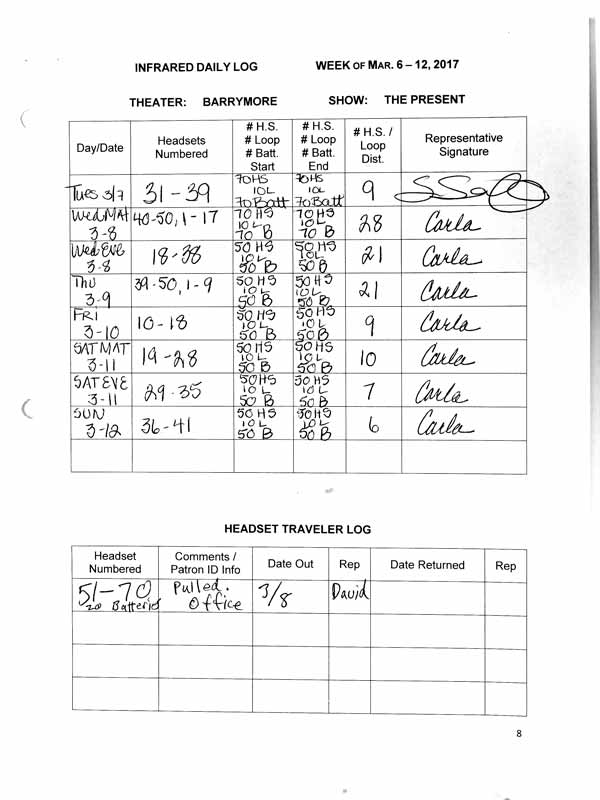 INFRARED DAILY LOG WEEK OF MAR. 6 – 12, 2017
THEATER: BARRYMORE SHOW: THE PRESENT
Day/Date Headsets Numbered # H.S. # Loop # Batt. Start # H.S. # Loop # Batt. End # H.S. / Loop Dist. Representative Signature
Tues 3/7 31 - 39 70HS 10L 70Batt 70HS 10L 70Batt 9
Wed MAT 3-8 40-50, 1-17 70 HS 10 L 70 B 70 HS 10 L 70 B 28 Carla
Wed EVE 3-8 18-38 50 HS 10 L 50 B 50 HS 10L 50 B 21 Carla
Thu 3-9 39-50, 1-9 50 HS 10 L 50 B 50 HS 10 L 50 B 21 Carla
FRI 3-10 10-18 50 HS 10 L 50 B 50 HS 10 L 50 B 9 Carla
SAT MAT 3-11 19-28 50 HS 10 L 50 B 50 HS 10 L 50 B 10 Carla
SAT EVE 3-11 29-35 50 HS 10 L 50 B 50 HS 10 L 50 B 7 Carla
SUN 3-12 36-41 50 HS 10 L 50 B 50 HS 10 L 50 B 6 Carla
HEADSET TRAVELER LOG
Headset Numbered Comments / Patron ID Info Date Out Rep Date Returned Rep
51-70 20 Batteries Pulled. Office 3/8 David
8